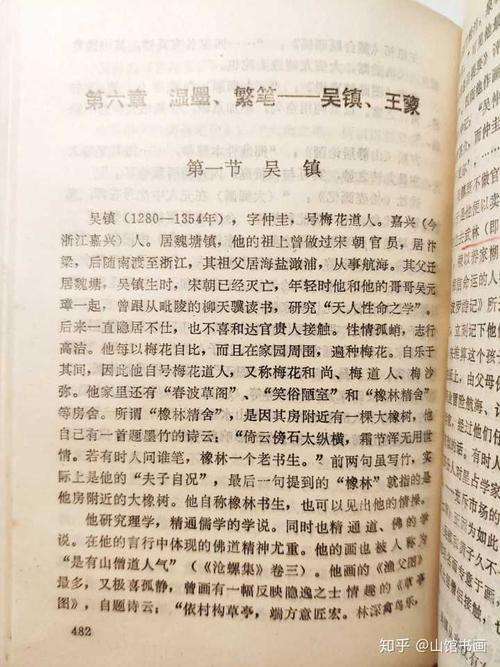 第六章　湿墨、繁笔——吴镇、王蒙
第一节　吴　镇
吴镇（1280—1354年），字仲圭，号梅花道人。嘉兴（今
浙江嘉兴）人。居魏塘镇，他的祖上曾做过宋朝官员，居汴
梁，后随南渡至浙江，其祖父居海盐澉浦，从事航海。其父迁
居魏塘，吴镇生时，宋朝已经灭亡，年轻时他和他的哥哥吴元
璋一起，曾跟从毗陵的柳天骥读书，研究“天人性命之学”。
后来一直隐居不仕，也不喜和达官贵人接触。性情孤峭，志行
高洁。他每以梅花自比，而且在家园周围，遍种梅花。自乐于
其间，因此他自号梅花道人，又称梅花和尚、梅道人、梅沙
弥。他家里还有“春波草阁”、“笑俗陋室”和“橡林精舍”
等房舍。所谓“橡林精舍”，是因其房附近有一棵大橡树，他
自己有一首题墨竹的诗云：“倚云傍石太纵横，霜节浑无用世
情。若有时人问谁笔，橡林一个老书生。”前两句虽写竹，实
际上是他的“夫子自况”，最后一句提到的“橡林”就指的是
他房附近的大橡树。他自称橡林书生，也可以见出他的情操。
他研究理学，精通儒学的学说。同时也精通道、佛的学
说。在他的言行中体现的佛道精神尤重。他的画也被人称为
“是有山僧道人气”（《沧螺集》卷三）。他画的《渔父图》
最多，又极喜孤静，曾画有一幅反映隐逸之士情趣的《草亭
图》，自题诗云：“依村构草亭，端方意匠宏。林深禽鸟乐，
482
知乎 @山馆书画